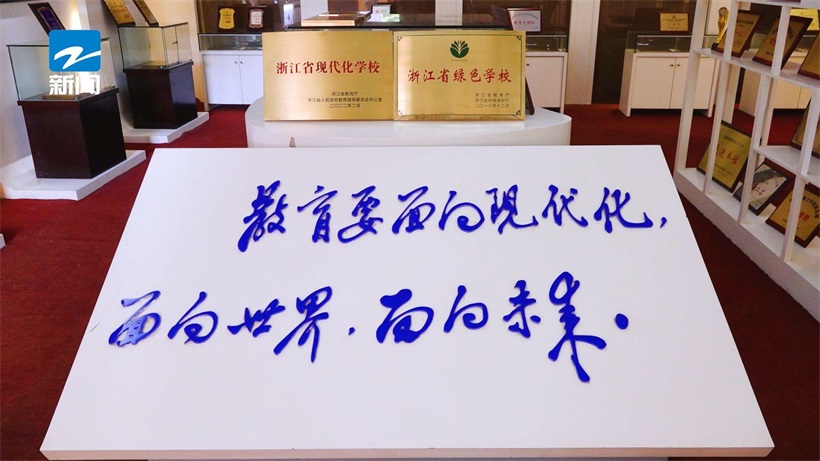 新闻
浙江省现代化学校
浙江省教育厅
浙江省人民政府教育督导委员会办公室
二〇二二年二月
浙江省绿色学校
浙江省教育厅
二〇一八年十二月
教育要面向现代化，
面向世界，面向未来。